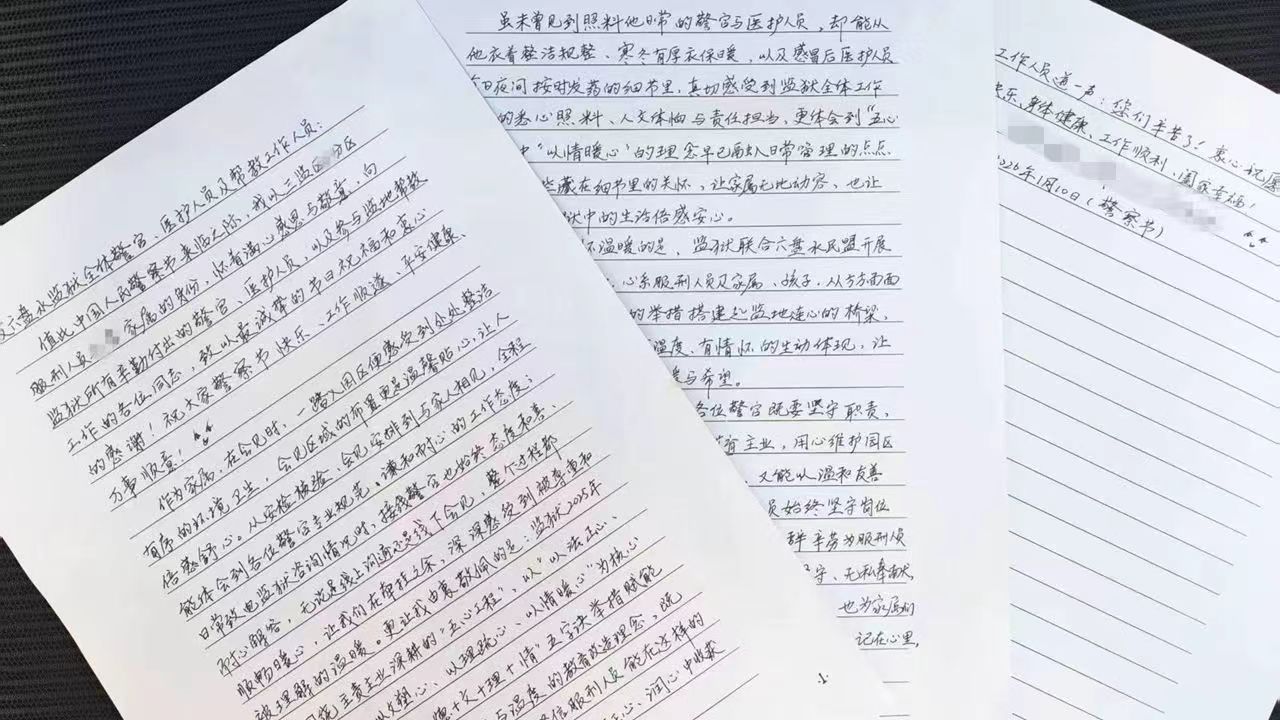 六盘水监狱全体警官、医护人员及帮教工作人员：
值此中国人民警察节来临之际，我以二监区 分区
服刑人员 家属的身份，怀着满心感恩与敬意，向
监狱所有辛勤付出的警官、医护人员，以及参与监地帮教
工作的各位同志，致以最诚挚的节日祝福和衷心
的感谢！祝大家警察节快乐、工作顺遂、平安健康、
万事顺意！
作为家属，在会见时，一踏入园区便感受到处处整洁
有序的环境卫生，会见区域的布置更是温馨贴心，让人
倍感舒心。从安检核验、会见安排到与家人相见，全程
能体会到各位警官专业规范、谦和耐心的工作态度；
日常致电监狱咨询情况时，接线警官也始终态度和善、
耐心解答，无论是线上沟通还是线下会见，整个过程都
顺畅暖心，让我们在牵挂之余，深深感受到被尊重和
被理解的温暖。更让我由衷敬佩的是：监狱2025年
围绕主责主业深耕的“五心工程”，以“以法正心、
以文塑心、以理疏心、以情暖心”为核心
德十文十理十情”五字诀举措赋能
与温度的教育改造理念，既
信服刑人员能在这样的
正心、润心中收获
虽未曾见到照料他日常的警官与医护人员，却能从
他衣着整洁规整、寒冬有厚衣保暖，以及感冒后医护人员
每日夜间按时发药的细节里，真切感受到监狱全体工作
的悉心照料、人文体恤与责任担当，更体会到“五心
中“以情暖心”的理念早已融入日常管理的点点
些藏在细节里的关怀，让家属无比动容，也让
狱中的生活倍感安心。
怀温暖的是，监狱联合六盘水民盟开展
，心系服刑人员及家属、孩子，从方方面面
的举措搭建起监地连心的桥梁，
温度、有情怀的生动体现，让
与希望。
各位警官既要坚守职责，
育主业，用心维护园区
又能以温和友善
员始终坚守岗位
辛劳为服刑人员
守、无私奉献，
也为家属们
记在心里，
工作人员道一声：您们辛苦了！衷心祝愿
快乐、身体健康、工作顺利、阖家幸福！
2026年1月10日（警察节）